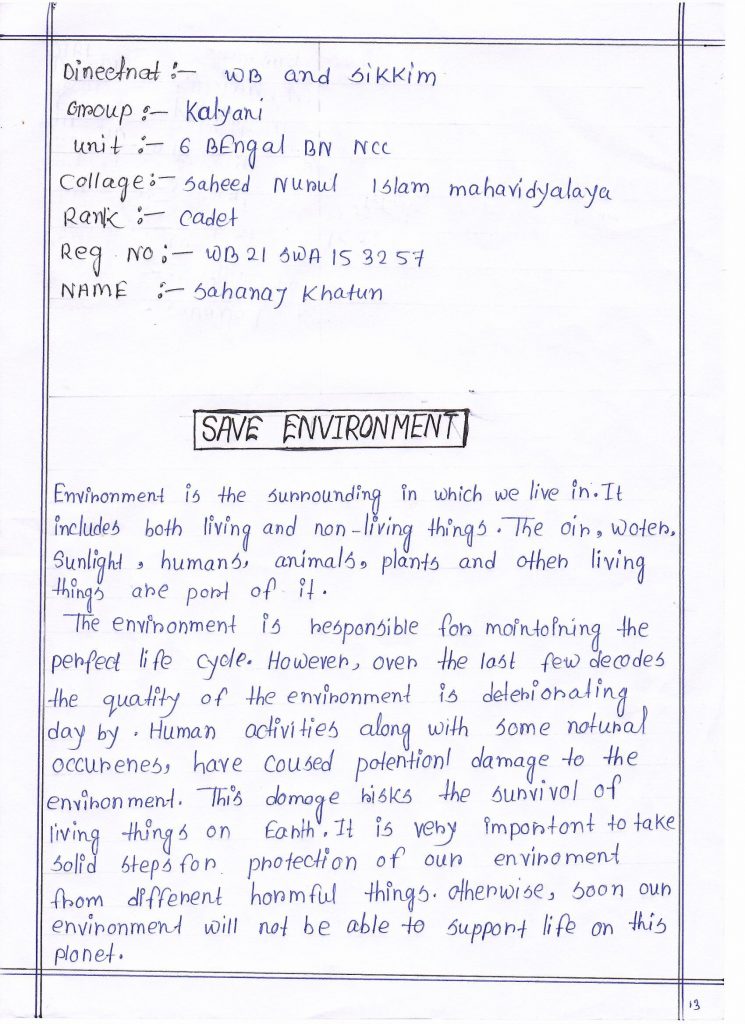 Directrat :- WB and Sikkim
Group :- Kalyani
unit :- 6 BEngal BN NCC
Collage :- Saheed Nurul Islam mahavidyalaya
Rank :- Cadet
Reg No :- WB 21 SWA 15 32 57
NAME :- Sahanaj Khatun
SAVE ENVIRONMENT
Environment is the surrounding in which we live in. It
includes both living and non-living things. The air, water,
Sunlight, humans, animals, plants and other living
things are part of it.
The environment is responsible for maintaining the
perfect life cycle. However, over the last few decades
the quatity of the environment is deteriorating
day by. Human activities along with some natural
occurenes, have caused potentionl damage to the
environment. This damage risks the survival of
living things on Earth. It is very important to take
solid steps for protection of our enviroment
from different harmful things. otherwise, soon our
environment will not be able to support life on this
planet.
13